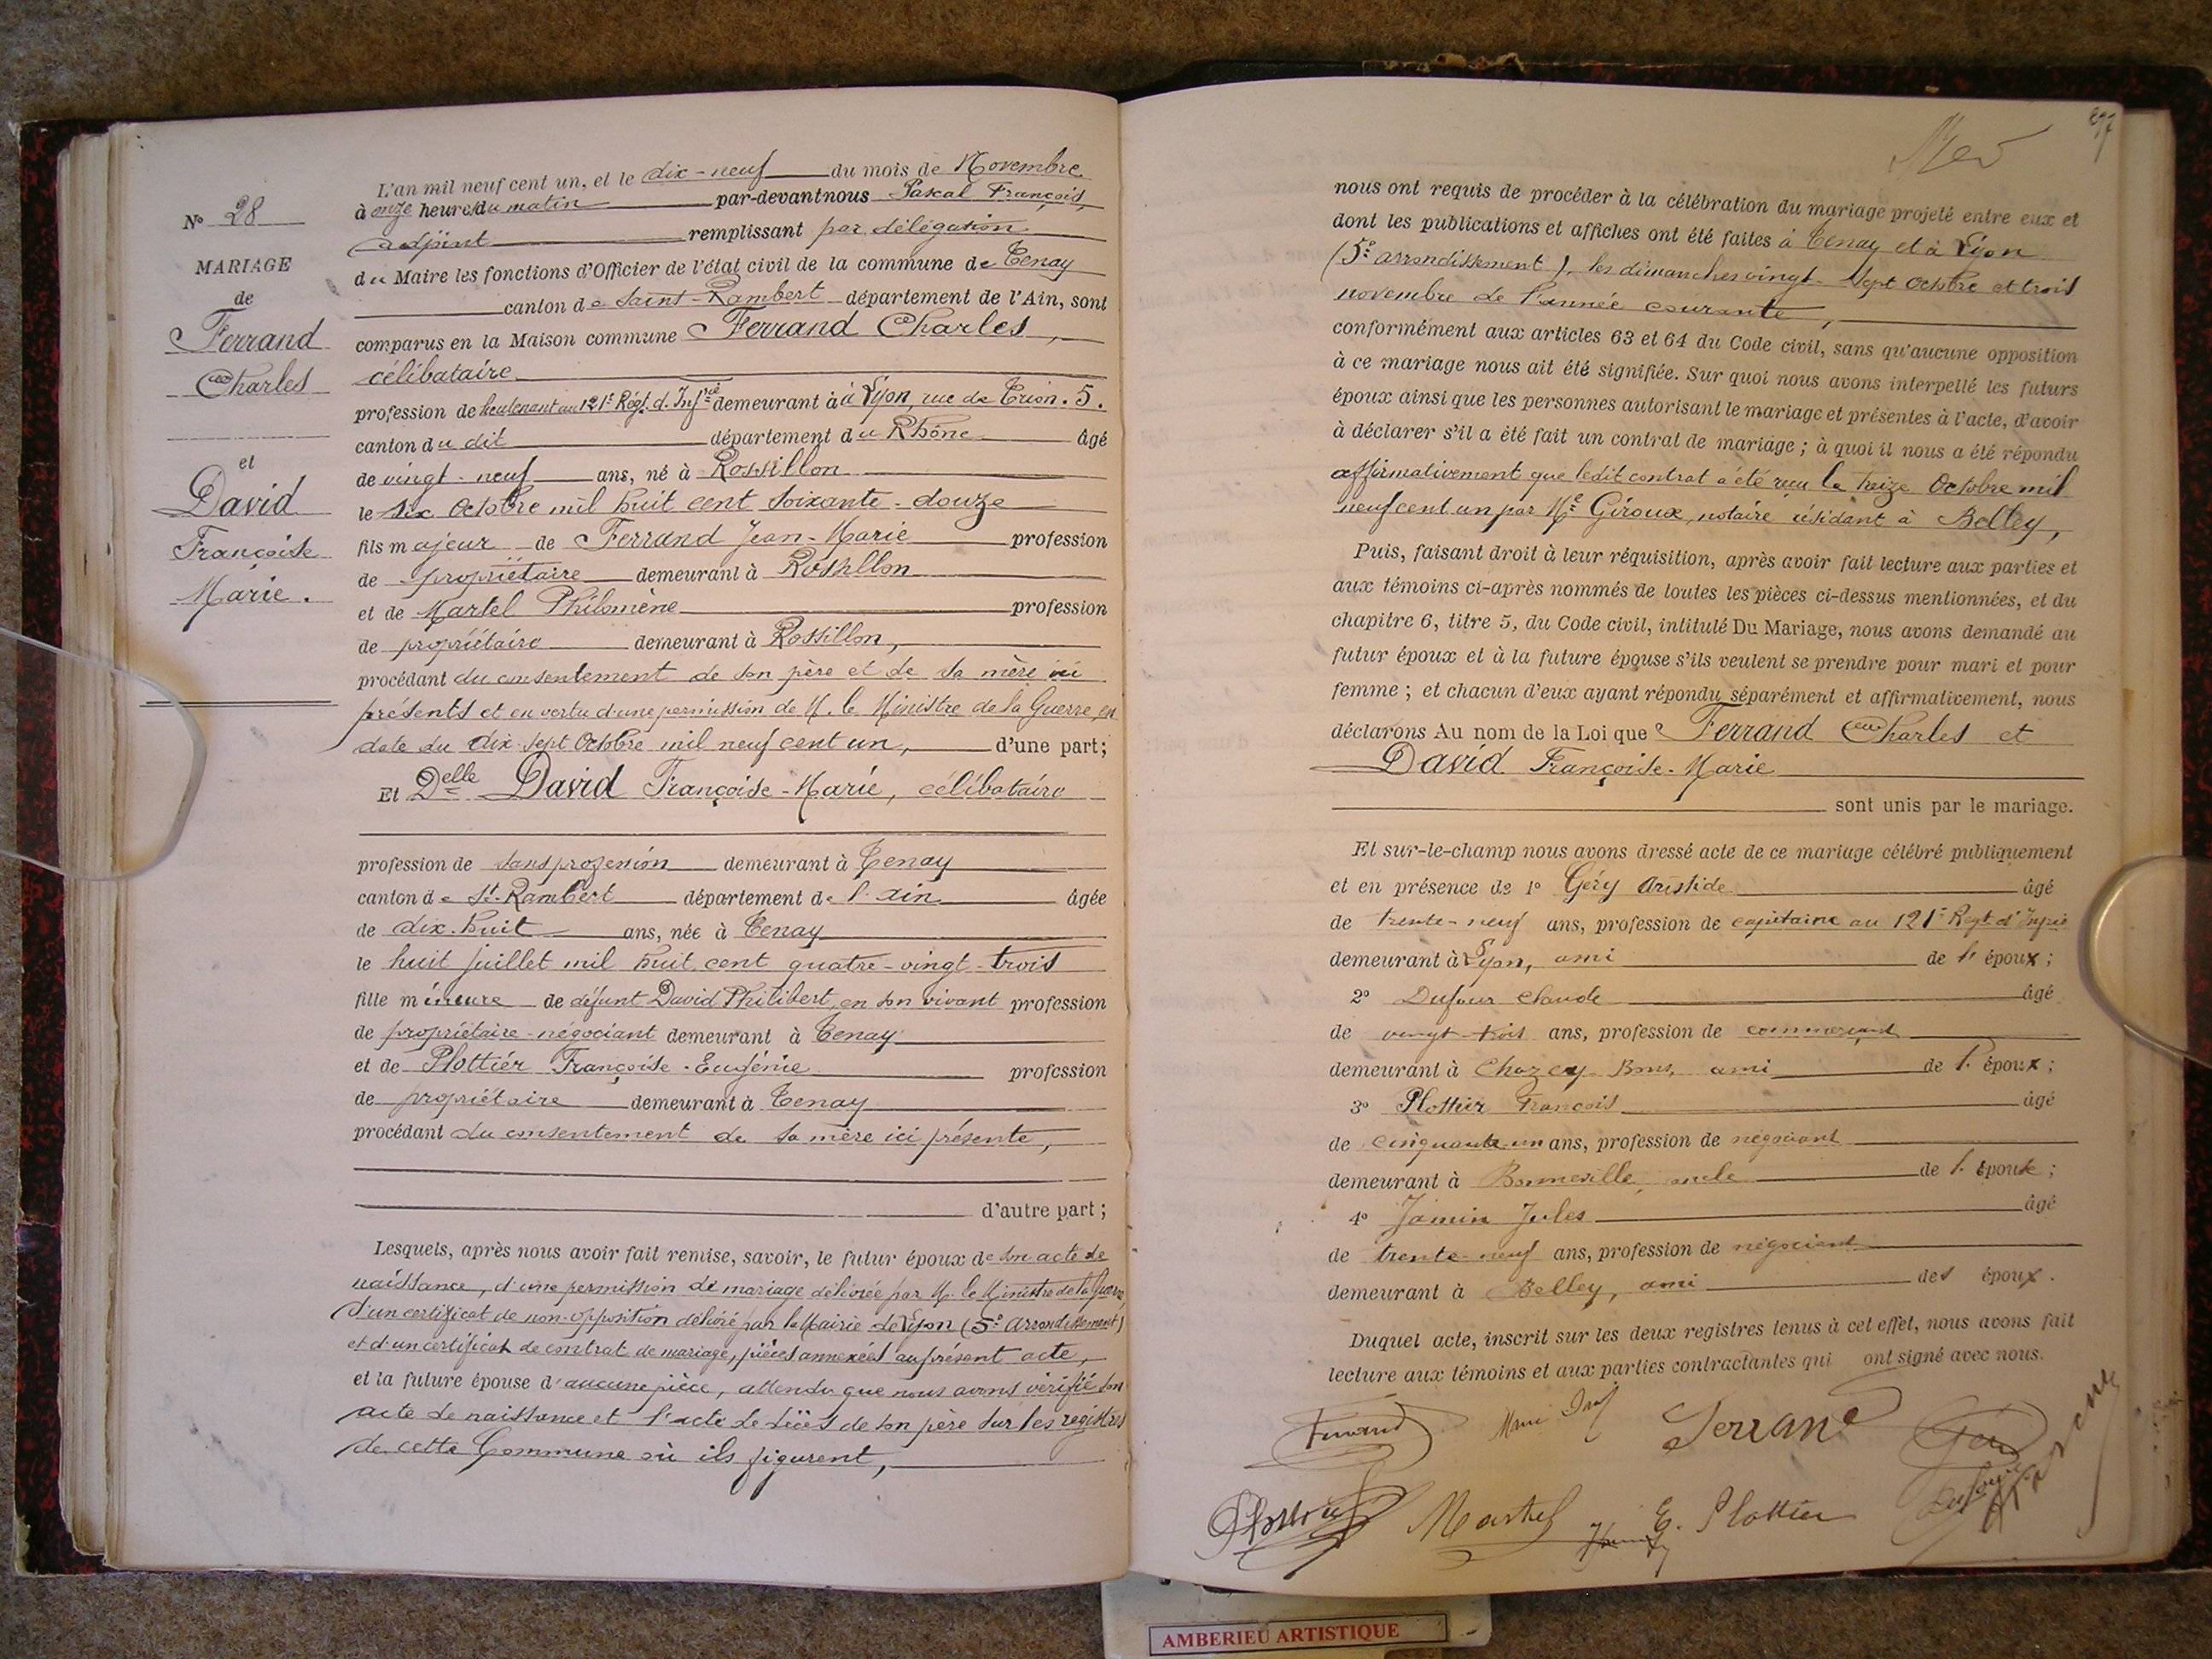 N° 28
MARIAGE
de
Ferrand
Charles
et
David
Françoise
Marie.
L'an mil neuf cent un, et le dix-neuf du mois de Novembre
à onze heures du matin par-devant nous Pascal François,
adjoint remplissant par délégation
du Maire les fonctions d'Officier de l'état civil de la commune de Tenay
canton de Saint-Rambert département de l'Ain, sont
comparus en la Maison commune Ferrand Charles,
célibataire
profession de lieutenant au 121e Régt. d. Infrie demeurant à à Lyon, rue de Trion. 5.
canton du dit département du Rhône âgé
de vingt-neuf ans, né à Rossillon
le six Octobre mil huit cent soixante-douze
fils majeur de Ferrand Jean-Marie profession
de propriétaire demeurant à Rossillon
et de Martel Philomène profession
de propriétaire demeurant à Rossillon,
procédant du consentement de son père et de sa mère ici
présents et en vertu d'une permission de M. le Ministre de la Guerre, en
date du dix-sept Octobre mil neuf cent un, d'une part;
Et Delle David Françoise-Marie, célibataire
profession de sans profession demeurant à Tenay
canton de St-Rambert département de l'ain âgée
de dix-huit ans, née à Tenay
le huit juillet mil huit cent quatre-vingt-trois
fille mineure de défunt David Philibert, en son vivant profession
de propriétaire-négociant demeurant à Tenay
et de Plottier Françoise-Eugénie profession
de propriétaire demeurant à Tenay
procédant du consentement de sa mère ici présente,
d'autre part;
Lesquels, après nous avoir fait remise, savoir, le futur époux de son acte de
naissance, d'une permission de mariage délivrée par M. le Ministre de la Guerre,
d'un certificat de non-opposition délivré par la Mairie de Lyon (5e arrondissement)
et d'un certificat de contrat de mariage, pièces annexées au présent acte,
et la future épouse d'aucune pièce, attendu que nous avons vérifié son
acte de naissance et l'acte de décès de son père sur les registres
de cette Commune où ils figurent,
297
nous ont requis de procéder à la célébration du mariage projeté entre eux et
dont les publications et affiches ont été faites à Tenay et à Lyon
(5e arrondissement), les dimanches vingt-sept Octobre et trois
novembre de l'année courante,
conformément aux articles 63 et 64 du Code civil, sans qu'aucune opposition
à ce mariage nous ait été signifiée. Sur quoi nous avons interpellé les futurs
époux ainsi que les personnes autorisant le mariage et présentes à l'acte, d'avoir
à déclarer s'il a été fait un contrat de mariage; à quoi il nous a été répondu
affirmativement que ledit contrat a été reçu le treize Octobre mil
neuf cent un par Me Giroux, notaire résidant à Belley,
Puis, faisant droit à leur réquisition, après avoir fait lecture aux parties et
aux témoins ci-après nommés de toutes les pièces ci-dessus mentionnées, et du
chapitre 6, titre 5, du Code civil, intitulé Du Mariage, nous avons demandé au
futur époux et à la future épouse s'ils veulent se prendre pour mari et pour
femme; et chacun d'eux ayant répondu séparément et affirmativement, nous
déclarons Au nom de la Loi que Ferrand Charles et
David Françoise-Marie
sont unis par le mariage.
Et sur-le-champ nous avons dressé acte de ce mariage célébré publiquement
et en présence de 1° Géry Aristide âgé
de trente-neuf ans, profession de capitaine au 121e Regt. d'Infrie
demeurant à Lyon, ami de l'époux;
2° Dufour Claude âgé
de vingt-trois ans, profession de commerçant
demeurant à Chazey-Bons, ami de l'époux;
3° Plottier François âgé
de cinquante-un ans, profession de négociant
demeurant à Bonneville, oncle de l'épouse;
4° Jamin Jules âgé
de trente-neuf ans, profession de négociant
demeurant à Belley, ami des époux.
Duquel acte, inscrit sur les deux registres tenus à cet effet, nous avons fait
lecture aux témoins et aux parties contractantes qui ont signé avec nous.
Ferrand Ferrand Géry
Plottier Martel E. Plottier Dufour
AMBERIEU ARTISTIQUE